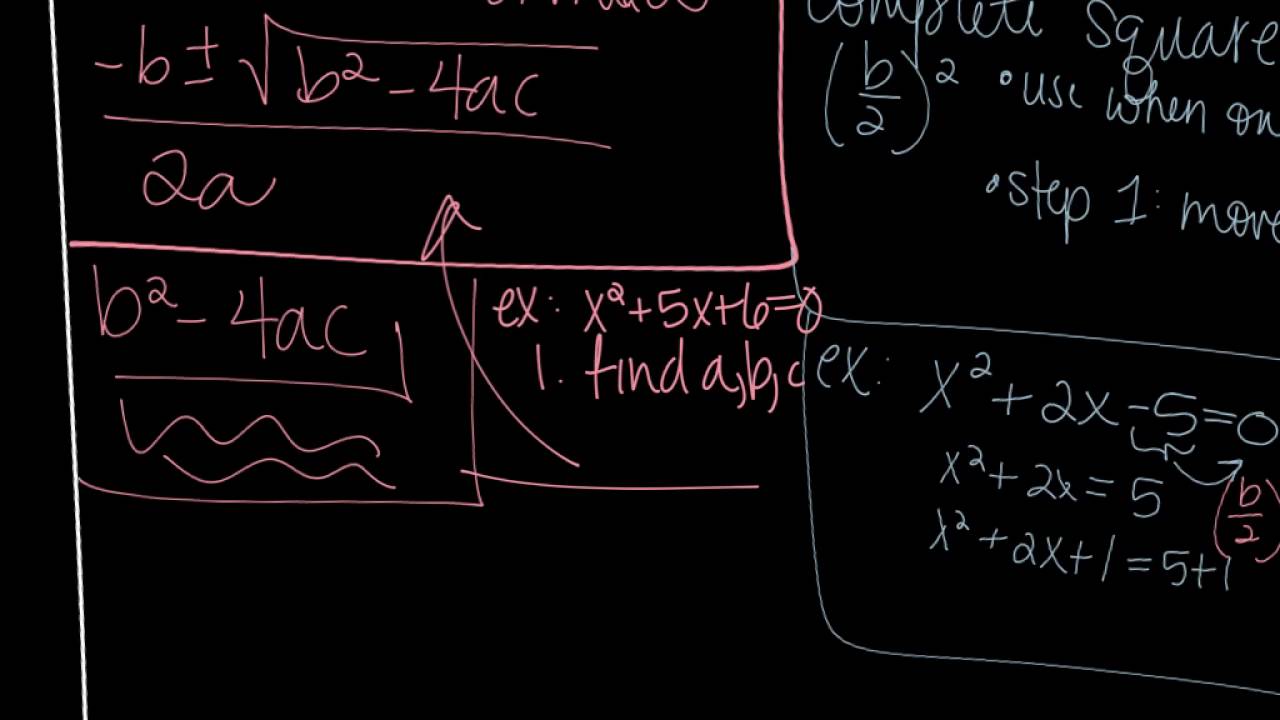 -b ± √b² - 4ac
2a
b² - 4ac
ex: x² + 5x + 6 = 0
1. find a, b, c
complete square
(b/2)² • use when on
• step 1: move
ex: x² + 2x - 5 = 0
x² + 2x = 5
(b/2)
x² + 2x + 1 = 5 + 1